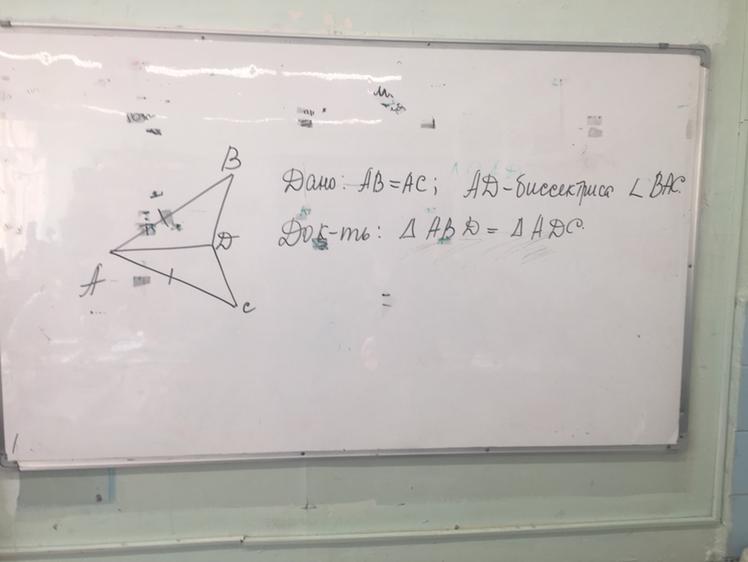 B
Дано: AB = AC; AD - биссектриса ∠ BAC.
Док-ть: Δ ABD = Δ ADC.
D
A
C
=